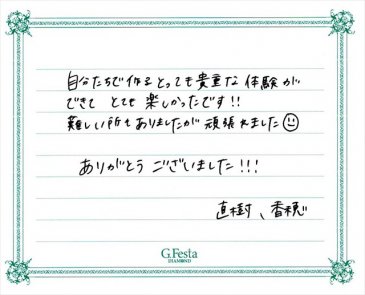 自分たちで作るとっても貴重な体験が
できて とても楽しかったです!!
難しい所もありましたが頑張れました☺
ありがとうございました!!!
直樹、香穂
G.Festa
DIAMOND